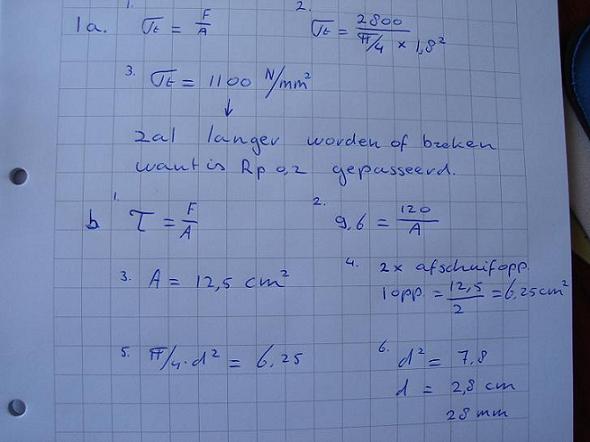 1a. 1. σt = F/A
2. σt = 2800 / (π/4 × 1,8²)
3. σt = 1100 N/mm²
↓
zal langer worden of breken
want is Rp 0,2 gepasseerd.
b 1. τ = F/A
2. 9,6 = 120/A
3. A = 12,5 cm²
4. 2x afschuifopp.
1 opp. = 12,5/2 = 6,25 cm²
5. π/4 · d² = 6,25
6. d² = 7,8
d = 2,8 cm
28 mm